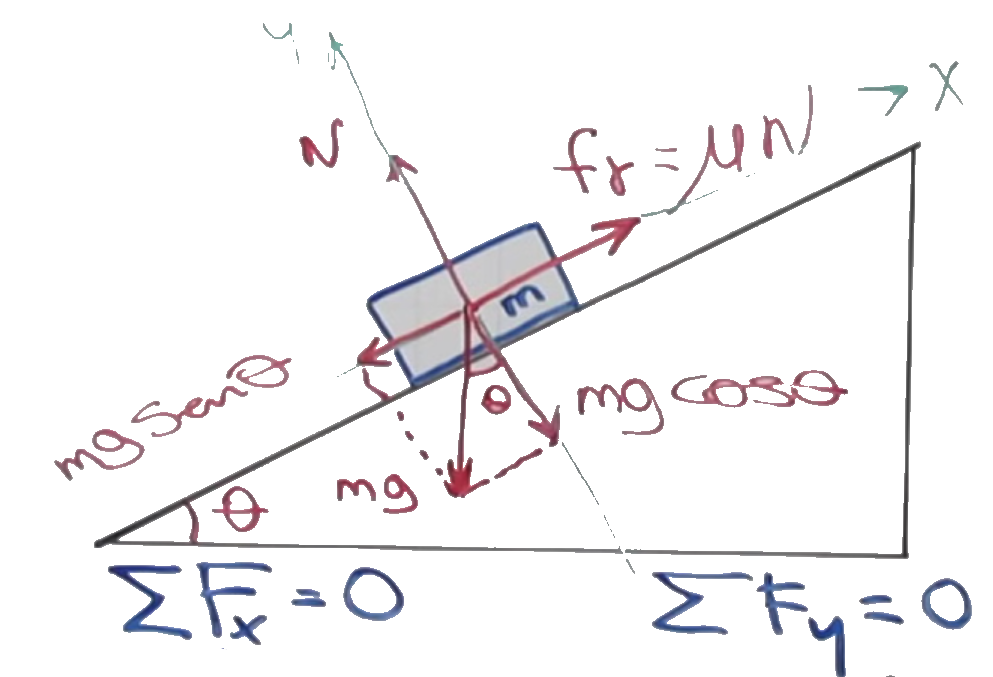 y
X
N
fr = μN
m
mg senθ
θ
mg cosθ
mg
θ
ΣFx = 0
ΣFy = 0